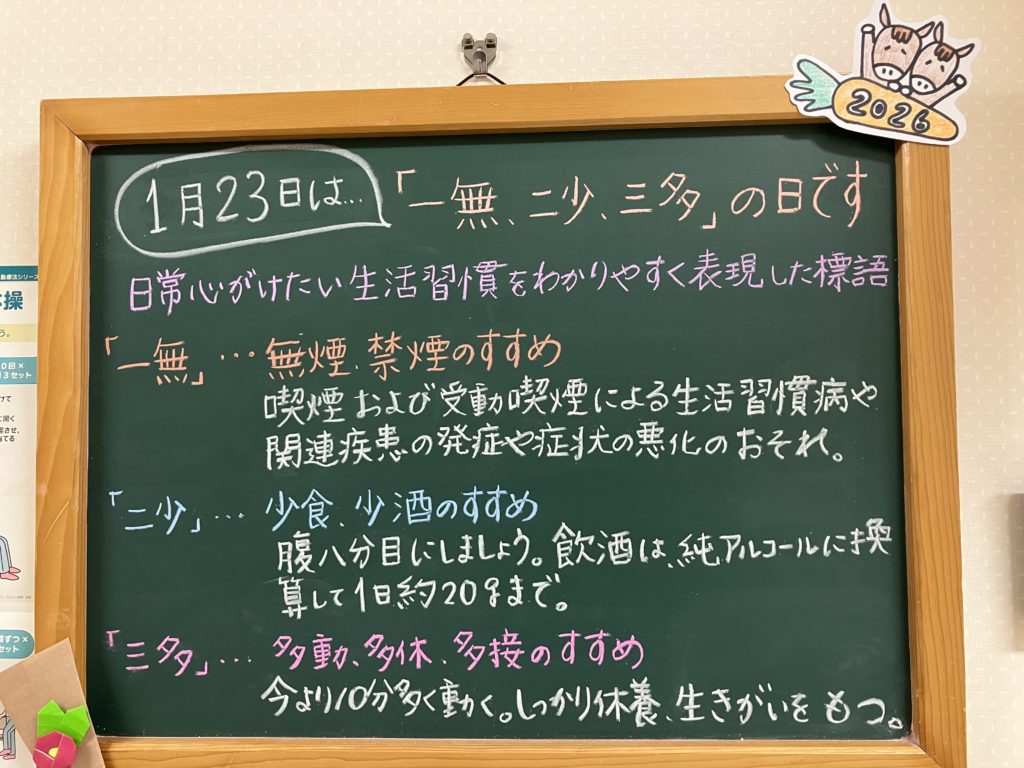 2026
1月23日は…「一無、二少、三多」の日です
日常心がけたい生活習慣をわかりやすく表現した標語
「一無」…無煙、禁煙のすすめ
喫煙および受動喫煙による生活習慣病や
関連疾患の発症や症状の悪化のおそれ。
「二少」…少食、少酒のすすめ
腹八分目にしましょう。飲酒は、純アルコールに換
算して1日約20gまで。
「三多」…多動、多休、多接のすすめ
今より10分多く動く。しっかり休養、生きがいをもつ。
動療法シリーズ
体操
う。
0回×
3セット
けて
に開く
てる
ずつ×
セット